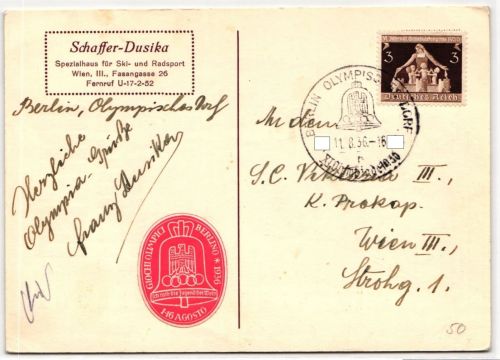 Schaffer-Dusika
Spezialhaus für Ski- und Radsport
Wien, III., Fasangasse 26
Fernruf U-17-2-52
3 3
Deutsches Reich
BERLIN OLYMPISCHES DORF
11.8.36.-16
Berlin, Olympisches Dorf
Herzliche
Olympia-Grüße
Franz Dusika
S.C. Viktoria III.
K. Prokop.
Wien III.,
Strohg. 1.
GIOCHI OLIMPICI BERLINO * 1936
Ich rufe die Jugend der Welt
1-16 AGOSTO
50